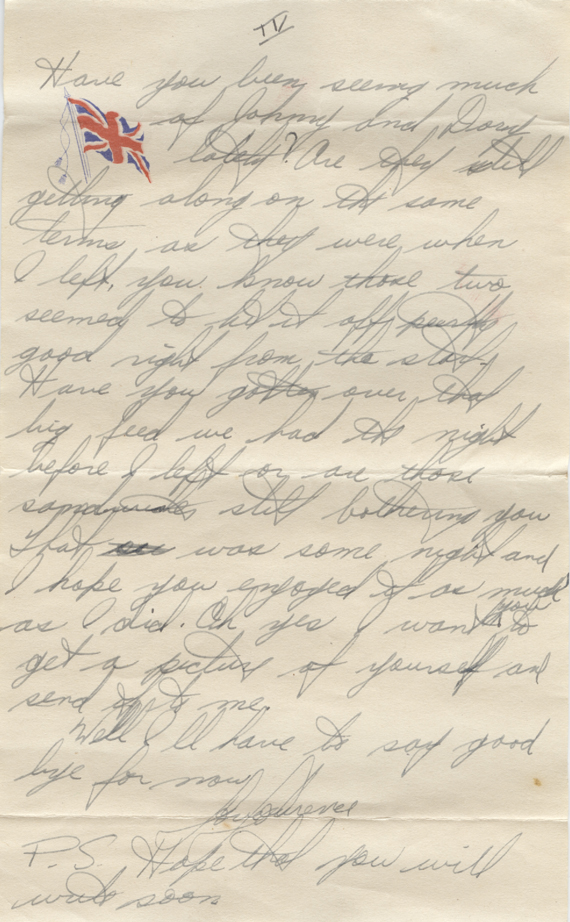 IV
Have you been seeing much
of Johnny and Dory
lately? Are they still
getting along on the same
terms as they were when
I left, you know those two
seemed to hit it off pretty
good right from the start.
Have you gotten over that
big feed we had the night
before I left or are those
sandwiches still bothering you
That was some night and
I hope you enjoyed it as much
as I did. Oh yes I want you to
get a picture of yourself and
send it to me.
Well I'll have to say good
bye for now
P.S. Hope that you will
write soon